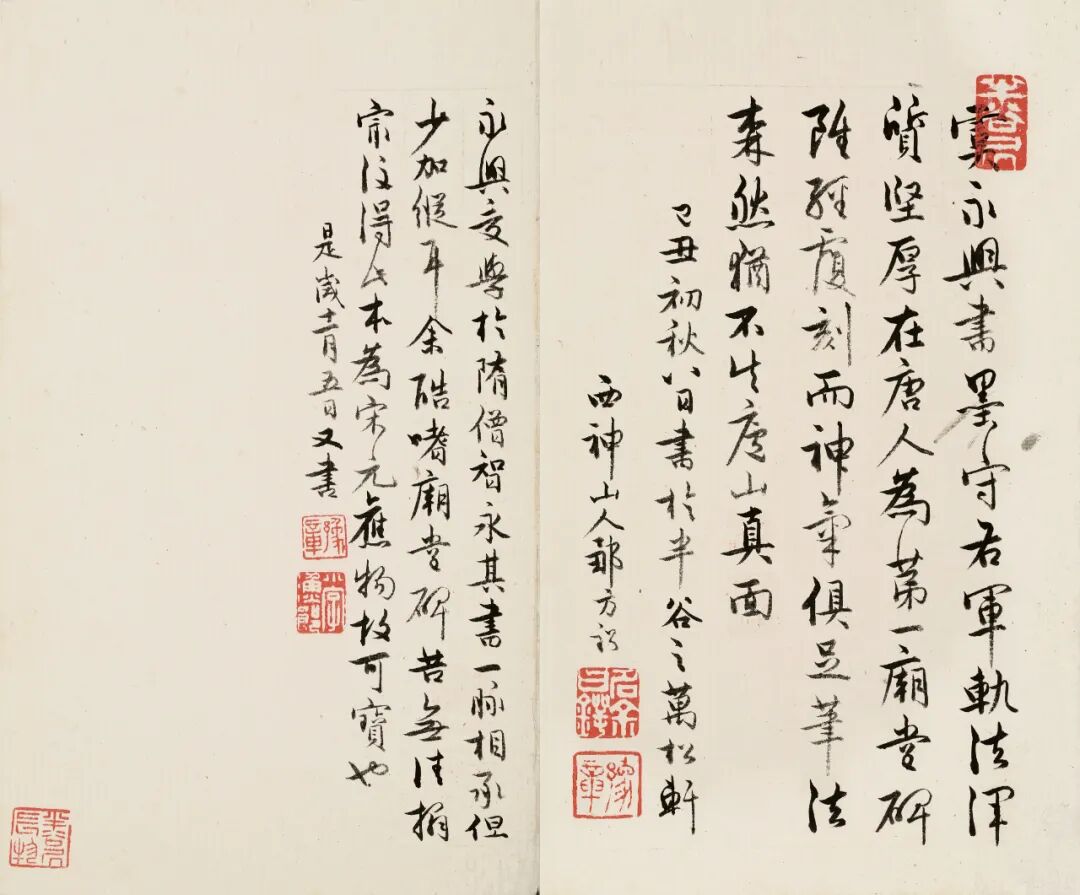 虞永興書墨守右軍軌法渾
質堅厚在唐人為第一廟堂碑
雖經覆刻而神氣俱足筆法
森然猶不失廬山真面
己丑初秋八日書於半谷之萬松軒
西神山人鄒方鍔
永興受學於隋僧智永其書一脉相承但
少加縱耳余酷嗜廟堂碑苦無佳搨
宗汶得此本為宋元舊物故可寶也
是歲十一月五日又書